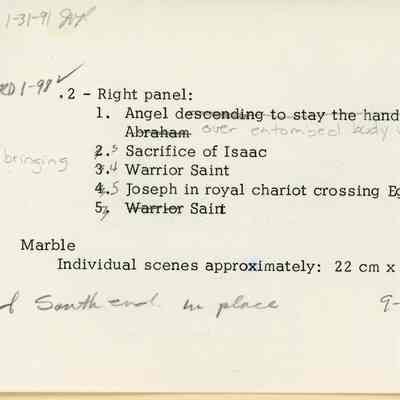 1-31-91
RD 1-98 ✓
.2 - Right panel:
1. Angel descending to stay the hand
Abraham over entombed body
bringing
2. 3 Sacrifice of Isaac
3. 4 Warrior Saint
4. 5 Joseph in royal chariot crossing Eg
5. Warrior Saint
Marble
Individual scenes approximately: 22 cm x
South end in place 9-